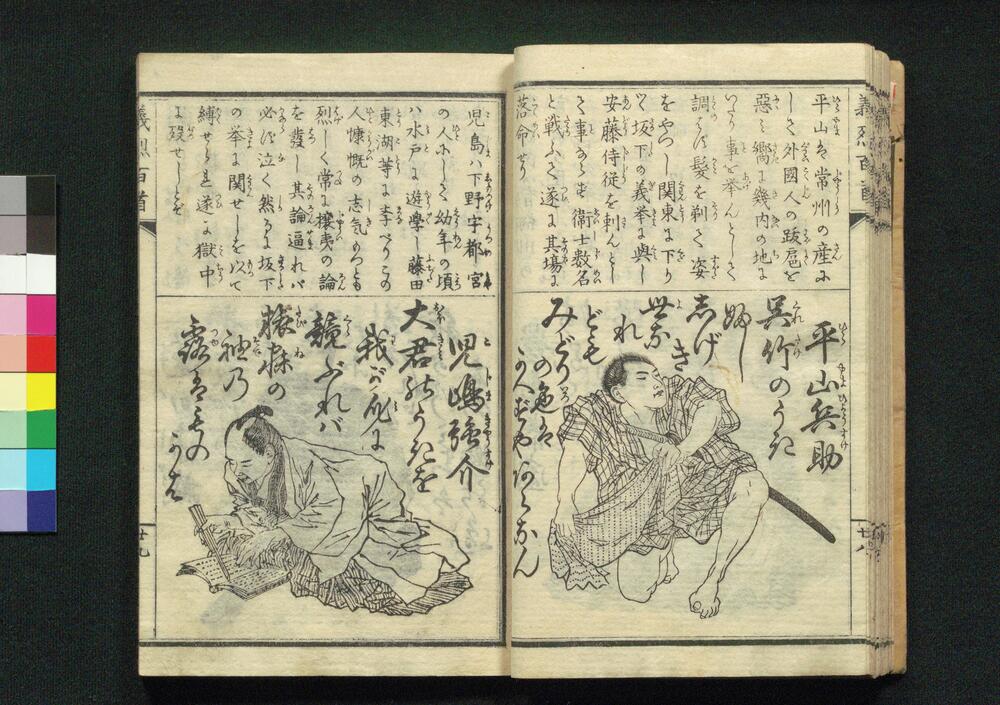 義烈百首
平山は常州の産に
して外國人の跋扈を
惡み窃に幾内の地に
いたり事を擧んとして
調はず髮を剃て姿
をやつし関東に下り
て坂下の義挙に與し
安藤侍従を刺んとし
て事ならず衛士数名
と戦ふて遂に其場に
落命せり
平山兵助
呉竹のうき
ふし
しげき
世に
れ
ども
みどり
の色は
かはらざらなん
廿八
児島ハ下野宇都宮
の人にして幼年の頃
ハ水戸に遊學し藤田
東湖等に学べりこの
人慷慨の志気あつとも
烈しく常に攘夷の論
を發し其論逼れバ
必ず泣く然るに坂下
の挙に関せしを以て
縛せられ遂に獄中
に歿せしとぞ
児嶋強介
大君のうきを
我が身に
競ぶれバ
旅寐の
袖の
露はもの
かは
義烈百首
廿九